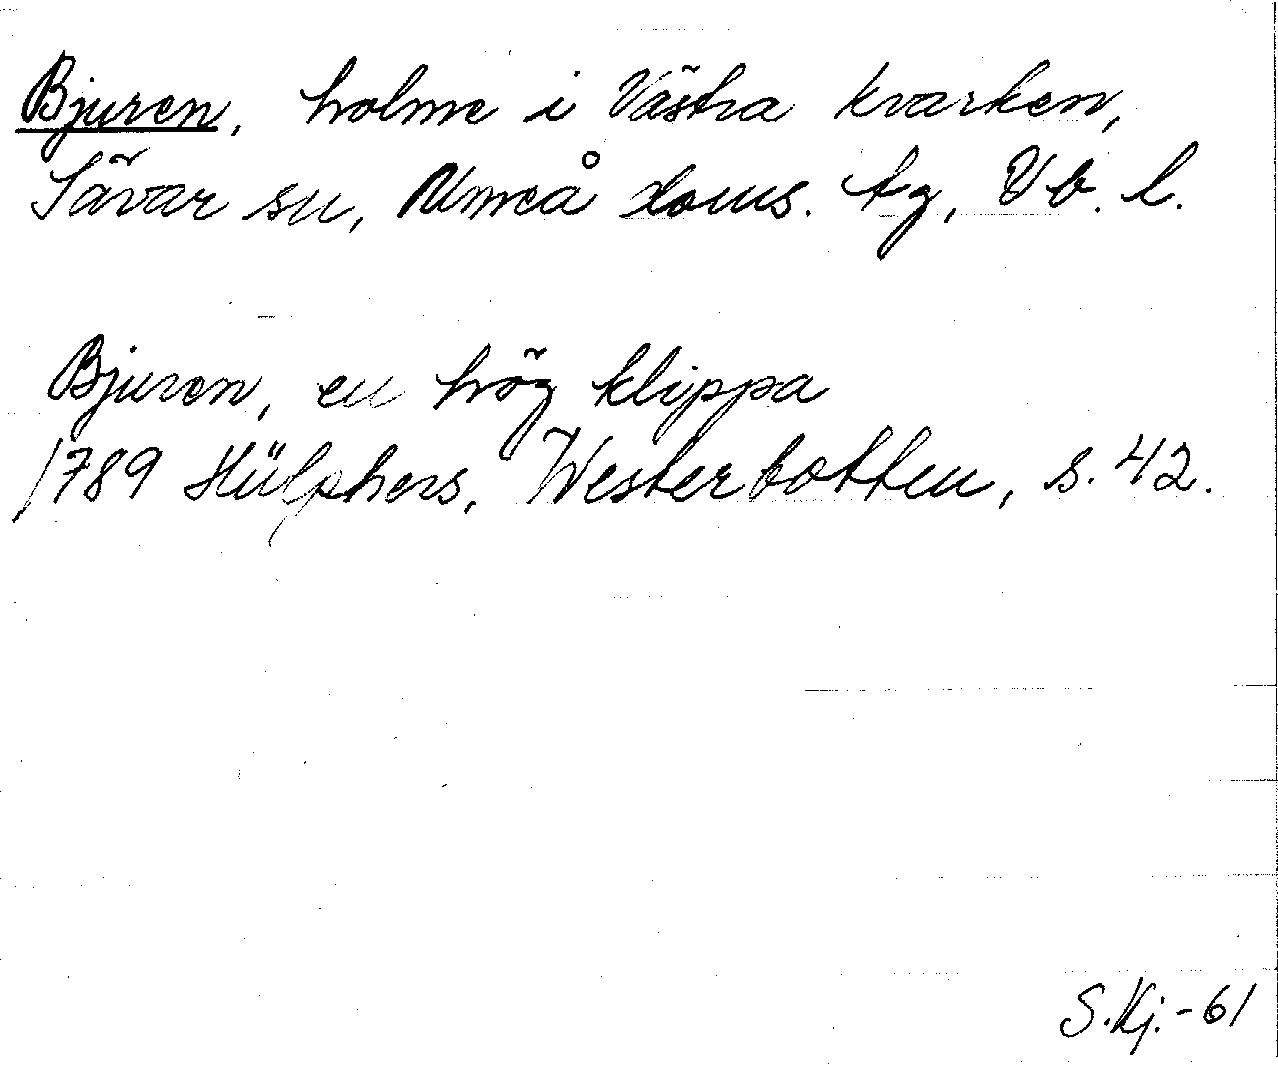 Bjuren, holme i Västra Kvarken,
Sävar sn, Umeå doms. tg, Vb. l.
Bjuren, en hög klippa
1789 Hülphers, Westerbotten, s. 42.
S.Kj.-61